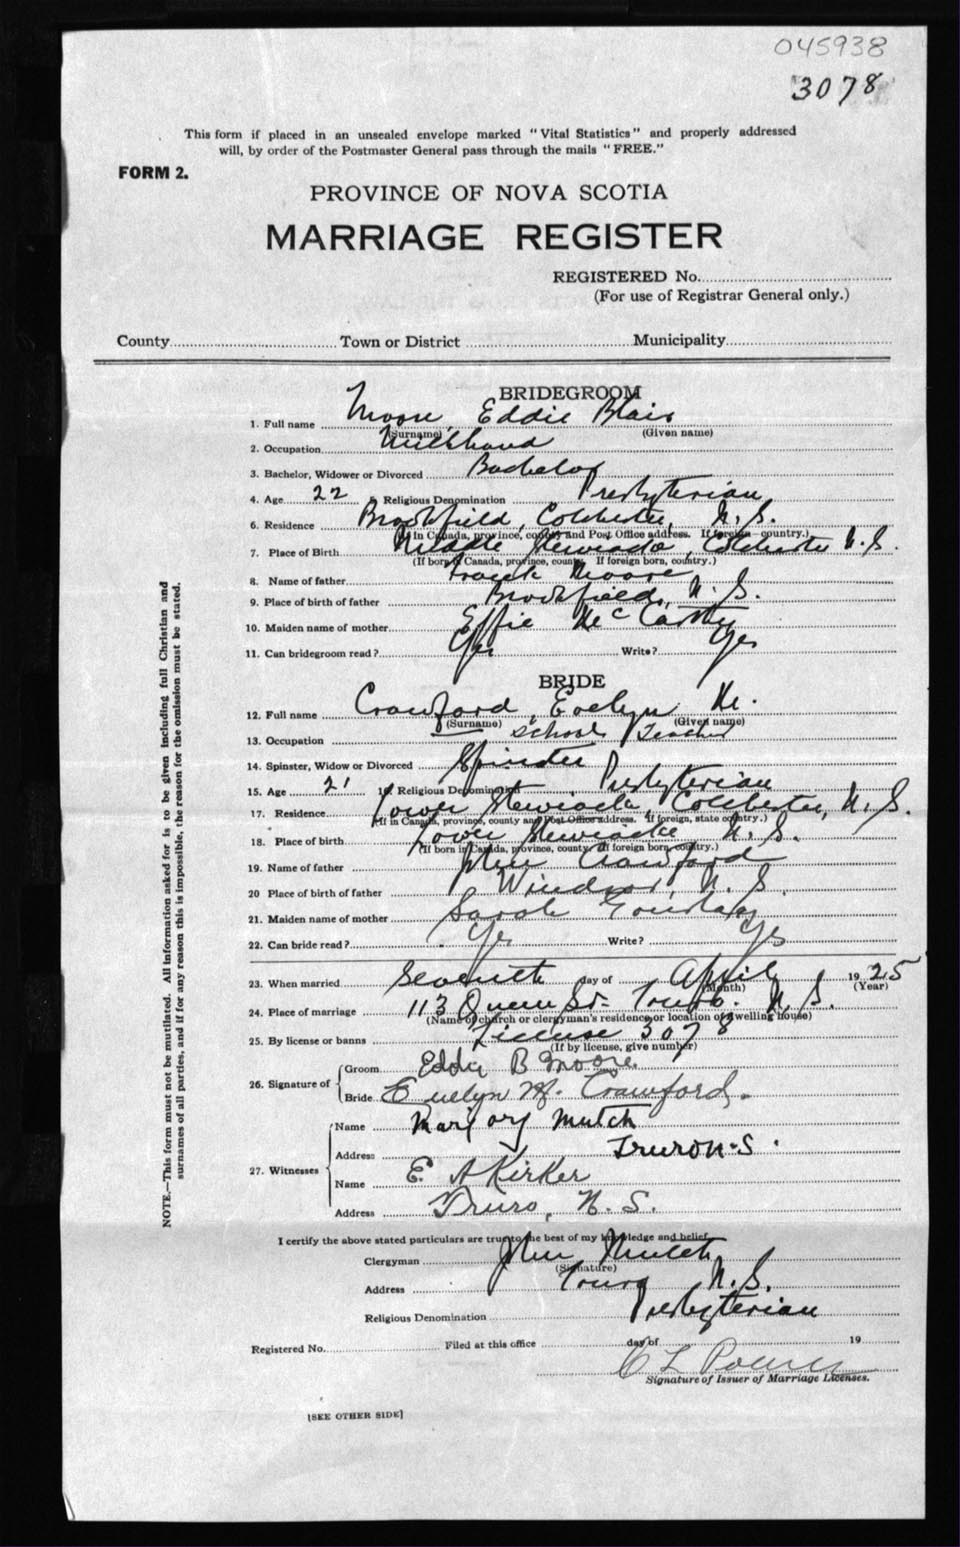 045938
3078
This form if placed in an unsealed envelope marked "Vital Statistics" and properly addressed
will, by order of the Postmaster General pass through the mails "FREE."
FORM 2.
PROVINCE OF NOVA SCOTIA
MARRIAGE REGISTER
REGISTERED No.
(For use of Registrar General only.)
County Town or District Municipality
BRIDEGROOM
1. Full name Moore, Eddie Blair
(Surname) (Given name)
2. Occupation
3. Bachelor, Widower or Divorced Bachelor
4. Age 22 5 Religious Denomination Presbyterian
6. Residence Brookfield, Colchester, N.S.
(In Canada, province, county and Post Office address. If foreign country.)
7. Place of Birth Middle Stewiacke, Colchester N.S.
(If born in Canada, province, county. If foreign born, country.)
8. Name of father Frank Moore
9. Place of birth of father Brookfield, N.S.
10. Maiden name of mother Effie McCarthy
11. Can bridegroom read? Yes Write? Yes
BRIDE
12. Full name Crawford, Evelyn M.
(Surname) (Given name)
13. Occupation School Teacher
14. Spinster, Widow or Divorced Spinster
15. Age 21 16 Religious Denomination Presbyterian
17. Residence Lower Stewiacke, Colchester, N.S.
(If in Canada, province, county and Post Office address. If foreign, state country.)
18. Place of birth Lower Stewiacke N.S.
(If born in Canada, province, county. If foreign born, country.)
19. Name of father John Crawford
20 Place of birth of father Windsor, N.S.
21. Maiden name of mother Sarah
22. Can bride read? Yes Write? Yes
23. When married Seventh day of April 1925
(Month) (Year)
24. Place of marriage 113 Queen St. Truro. N.S.
(Name of church or clergyman's residence or location of dwelling house)
25. By license or banns License 3078
(If by license, give number)
26. Signature of Groom Eddie B Moore.
Bride Evelyn M. Crawford.
27. Witnesses Name Marjory Mutch
Address Truro N.S.
Name E. A Kirker
Address Truro, N.S.
I certify the above stated particulars are true to the best of my knowledge and belief.
Clergyman John Mutch
(Signature)
Address Truro N.S.
Religious Denomination Presbyterian
Registered No. Filed at this office day of 19
C L
Signature of Issuer of Marriage Licenses.
[SEE OTHER SIDE]
NOTE.—This form must not be mutilated. All information asked for is to be given including full Christian and
surnames of all parties, and if for any reason this is impossible, the reason for the omission must be stated.